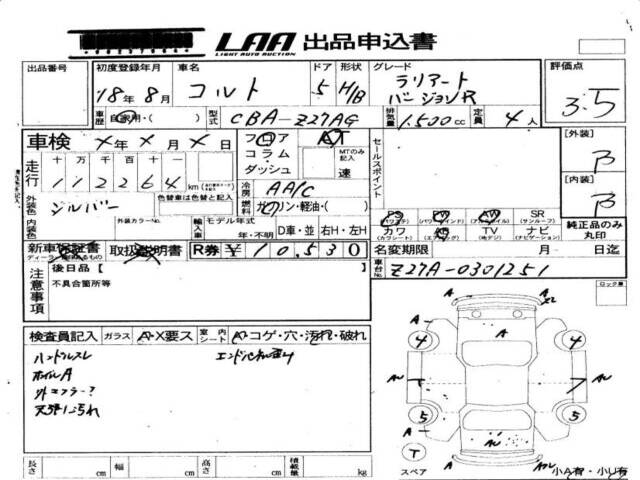 LAA 出品申込書
LIGHT AUTO AUCTION
出品番号 初度登録年月 車名 ドア 形状 グレード 評価点
18年 8月 コルト 5 H/B ラリアート バージョンR 3.5
車歴 自家用・( ) 型式 CBA-Z27AG 排気量 1.500cc 定員 4人
車検 X年 X月 X日 フロア AT
コラム MTのみ記入
ダッシュ 速
セールスポイント
[外装] B
[内装] B
走行 十 万 千 百 十 一
1 1 2 2 6 4 km
冷房 AA/C
色替車は色替と記入
燃料 ガソリン・軽油・( )
外装色 シルバー
内装色 外装カラーNo.
輸入車 モデル年式
年・不明 D車・並 右H・左H
PS PW AW SR
(パワステ) (パワーウィンドウ) (アルミホイル) (サンルーフ)
カワ AB TV ナビ
(カワシート) (エアバッグ) (地デジ) (ナビゲーション)
純正品のみ丸印
新車保証書 取扱説明書 R券 ¥10,530
名変期限 月 日迄
車台No. Z27A-0301251
注意事項
後日品 [
不具合箇所等
ロック著
検査員記入 ガラス A・X要ス 室内シート A・コゲ・穴・汚れ・破れ
ハンドルスレ
ホイルA
外マフラー?
天張に汚れ
A A
4 4
AW T AW
5 5
A AW A
T
スペア
小A有・小U有
長さ cm 幅 cm 高さ cm 積載量 kg